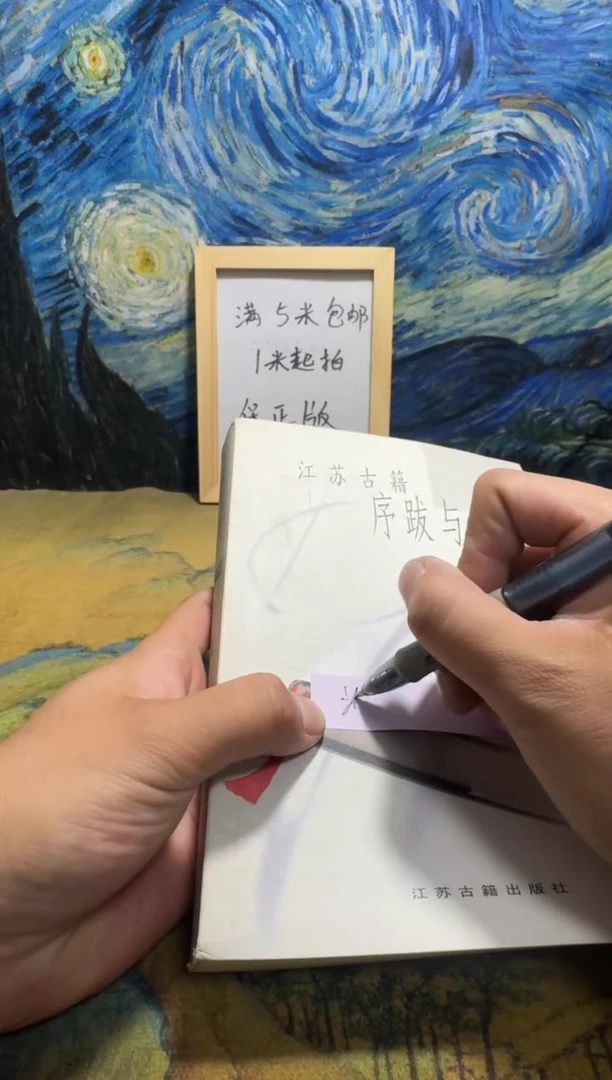 满5米包邮
1米起拍
保正版
江苏古籍
序跋与
江苏古籍出版社